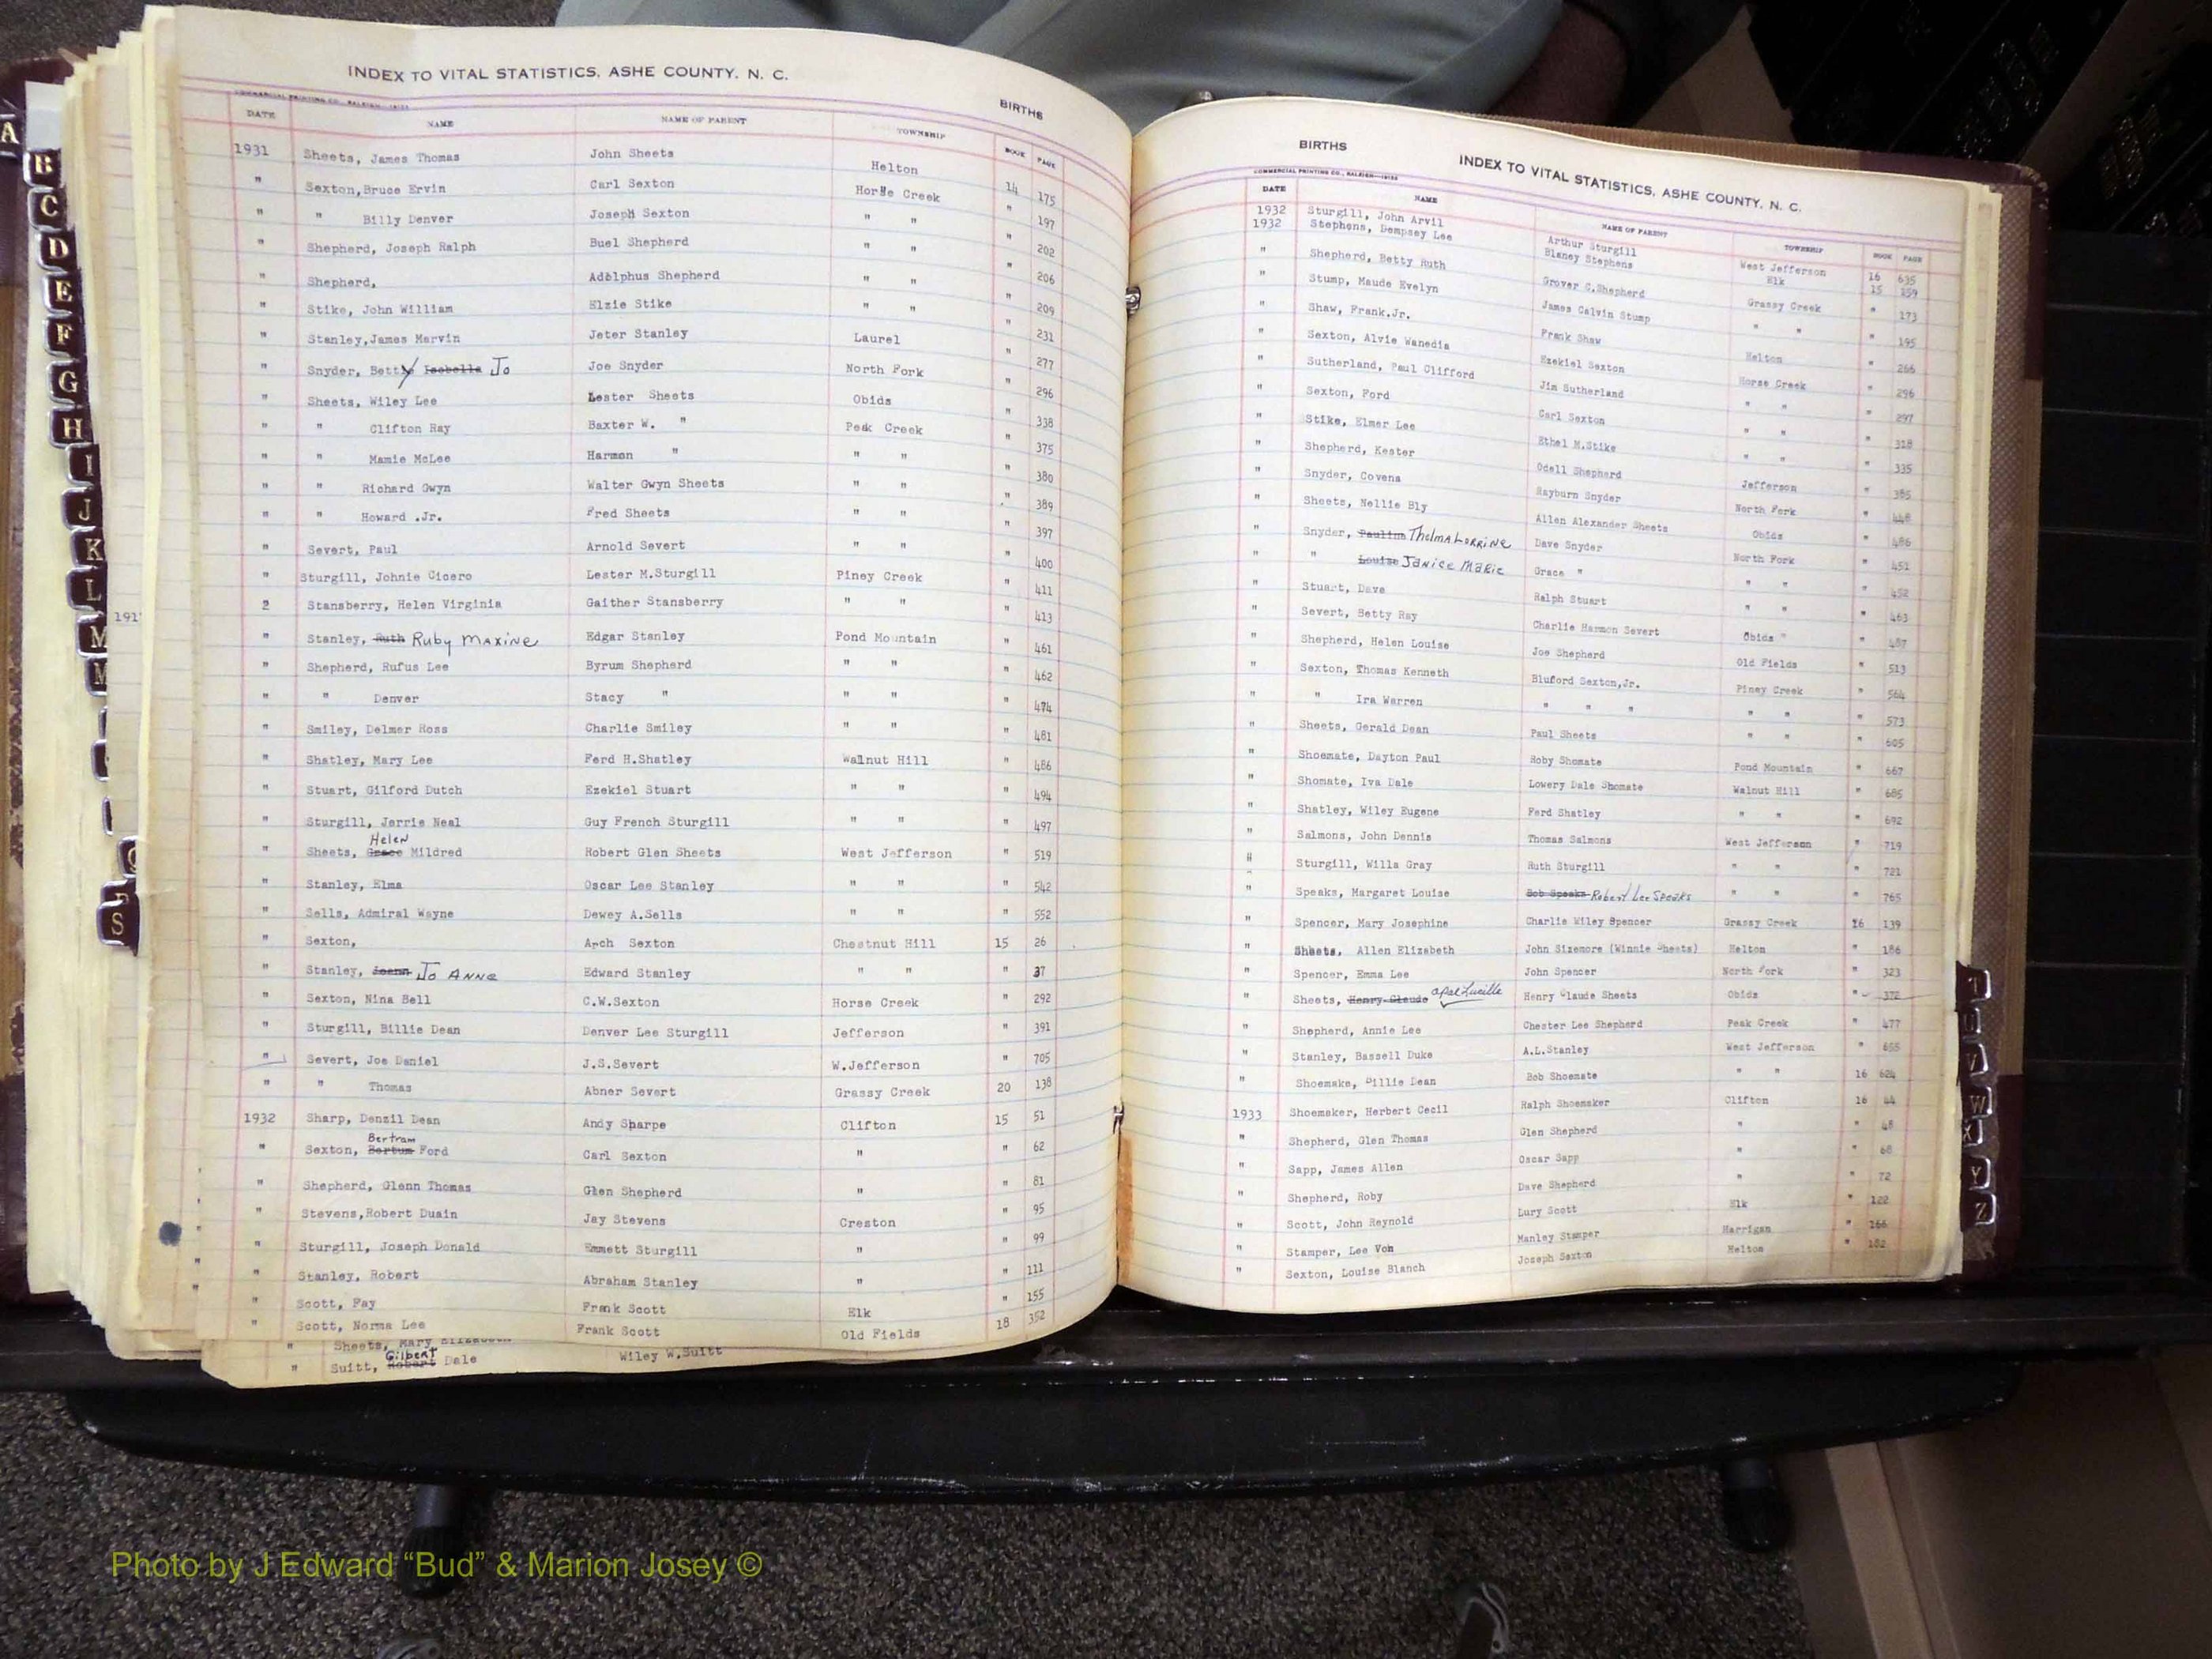 INDEX TO VITAL STATISTICS, ASHE COUNTY, N. C.
COMMERCIAL PRINTING CO., RALEIGH
BIRTHS
DATE NAME NAME OF PARENT TOWNSHIP BOOK PAGE
1931 Sheets, James Thomas John Sheets Helton 14 175
" Sexton,Bruce Ervin Carl Sexton Horse Creek " 197
" " Billy Denver Joseph Sexton " " " 202
" Shepherd, Joseph Ralph Buel Shepherd " " " 206
" Shepherd, Adolphus Shepherd " " " 209
" Stike, John William Elzie Stike " " " 231
" Stanley,James Marvin Jeter Stanley Laurel " 277
" Snyder, Betty Isobella Jo Joe Snyder North Fork " 296
" Sheets, Wiley Lee Lester Sheets Obids " 338
" " Clifton Ray Baxter W. " Peak Creek " 375
" " Mamie McLee Harmon " " " " 380
" " Richard Gwyn Walter Gwyn Sheets " " " 389
" " Howard .Jr. Fred Sheets " " " 397
" Severt, Paul Arnold Severt " " " 400
" Sturgill, Johnie Cicero Lester M.Sturgill Piney Creek " 411
2 Stansberry, Helen Virginia Gaither Stansberry " " " 413
" Stanley, Ruth Ruby Maxine Edgar Stanley Pond Mountain " 461
" Shepherd, Rufus Lee Byrum Shepherd " " " 462
" " Denver Stacy " " " " 474
" Smiley, Delmer Ross Charlie Smiley " " " 481
" Shatley, Mary Lee Ferd H.Shatley Walnut Hill " 486
" Stuart, Gilford Dutch Ezekiel Stuart " " " 494
" Sturgill, Jerrie Neal Guy French Sturgill " " " 497
Helen
" Sheets, Grace Mildred Robert Glen Sheets West Jefferson " 519
" Stanley, Elma Oscar Lee Stanley " " " 542
" Sells, Admiral Wayne Dewey A.Sells " " " 552
" Sexton, Arch Sexton Chestnut Hill 15 26
" Stanley, Joann Jo Anne Edward Stanley " " " 37
" Sexton, Nina Bell C.W.Sexton Horse Creek " 292
" Sturgill, Billie Dean Denver Lee Sturgill Jefferson " 391
" Severt, Joe Daniel J.S.Severt W.Jefferson " 705
" " Thomas Abner Severt Grassy Creek 20 138
1932 Sharp, Denzil Dean Andy Sharpe Clifton 15 51
Bertram
" Sexton, Bertum Ford Carl Sexton " " 62
" Shepherd, Glenn Thomas Glen Shepherd " " 81
" Stevens,Robert Duain Jay Stevens Creston " 95
" Sturgill, Joseph Donald Emmett Sturgill " " 99
" Stanley, Robert Abraham Stanley " " 111
" Scott, Fay Frank Scott Elk " 155
" Scott, Norma Lee Frank Scott Old Fields 18 352
" Sheets, Mary Elizabeth
Gilbert
" Suitt, Robert Dale Wiley W.Suitt
BIRTHS
INDEX TO VITAL STATISTICS, ASHE COUNTY, N. C.
COMMERCIAL PRINTING CO., RALEIGH
DATE NAME NAME OF PARENT TOWNSHIP BOOK PAGE
1932 Sturgill, John Arvil Arthur Sturgill West Jefferson 16 635
1932 Stephens, Dempsey Lee Blaney Stephens Elk 15 159
" Shepherd, Betty Ruth Grover C.Shepherd Grassy Creek " 173
" Stump, Maude Evelyn James Calvin Stump " " " 195
" Shaw, Frank.Jr. Frank Shaw Helton " 266
" Sexton, Alvie Wanedia Ezekiel Sexton Horse Creek " 296
" Sutherland, Paul Clifford Jim Sutherland " " " 297
" Sexton, Ford Carl Sexton " " " 318
" Stike, Elmer Lee Ethel M.Stike " " " 335
" Shepherd, Kester Odell Shepherd Jefferson " 385
" Snyder, Covena Rayburn Snyder North Fork " 448
" Sheets, Nellie Bly Allen Alexander Sheets Obids " 486
" Snyder, Pauline Thelma Lorrine Dave Snyder North Fork " 451
" " Louise Janice Marie Grace " " " " 452
" Stuart, Dave Ralph Stuart " " " 463
" Severt, Betty Ray Charlie Harmon Severt Obids " " 487
" Shepherd, Helen Louise Joe Shepherd Old Fields " 513
" Sexton, Thomas Kenneth Bluford Sexton,Jr. Piney Creek " 564
" " Ira Warren " " " " " " 573
" Sheets, Gerald Dean Paul Sheets " " " 605
" Shoemate, Dayton Paul Roby Shomate Pond Mountain " 667
" Shomate, Iva Dale Lowery Dale Shomate Walnut Hill " 685
" Shatley, Wiley Eugene Ferd Shatley " " " 692
" Salmons, John Dennis Thomas Salmons West Jefferson " 719
" Sturgill, Willa Gray Ruth Sturgill " " " 721
" Speaks, Margaret Louise Bob Speaks Robert Lee Speaks " " " 765
" Spencer, Mary Josephine Charlie Wiley Spencer Grassy Creek 16 139
" Sheets, Allen Elizabeth John Sizemore (Winnie Sheets) Helton " 186
" Spencer, Emma Lee John Spencer North Fork " 323
" Sheets, Henry Claude Opal Lucille Henry Claude Sheets Obids " 372
" Shepherd, Annie Lee Chester Lee Shepherd Peak Creek " 477
" Stanley, Bassell Duke A.L.Stanley West Jefferson " 655
" Shoemake, Billie Dean Bob Shoemate " " 16 624
1933 Shoemaker, Herbert Cecil Ralph Shoemaker Clifton 16 44
" Shepherd, Glen Thomas Glen Shepherd " " 48
" Sapp, James Allen Oscar Sapp " " 68
" Shepherd, Roby Dave Shepherd " " 72
" Scott, John Reynold Lury Scott Elk " 122
" Stamper, Lee Von Manley Stamper Harrigan " 166
" Sexton, Louise Blanch Joseph Sexton Helton " 182
A
B
C
D
E
F
G
H
I
J
K
L
M
S
191
T
V
W
X
Y
Z
Photo by J Edward “Bud” & Marion Josey ©